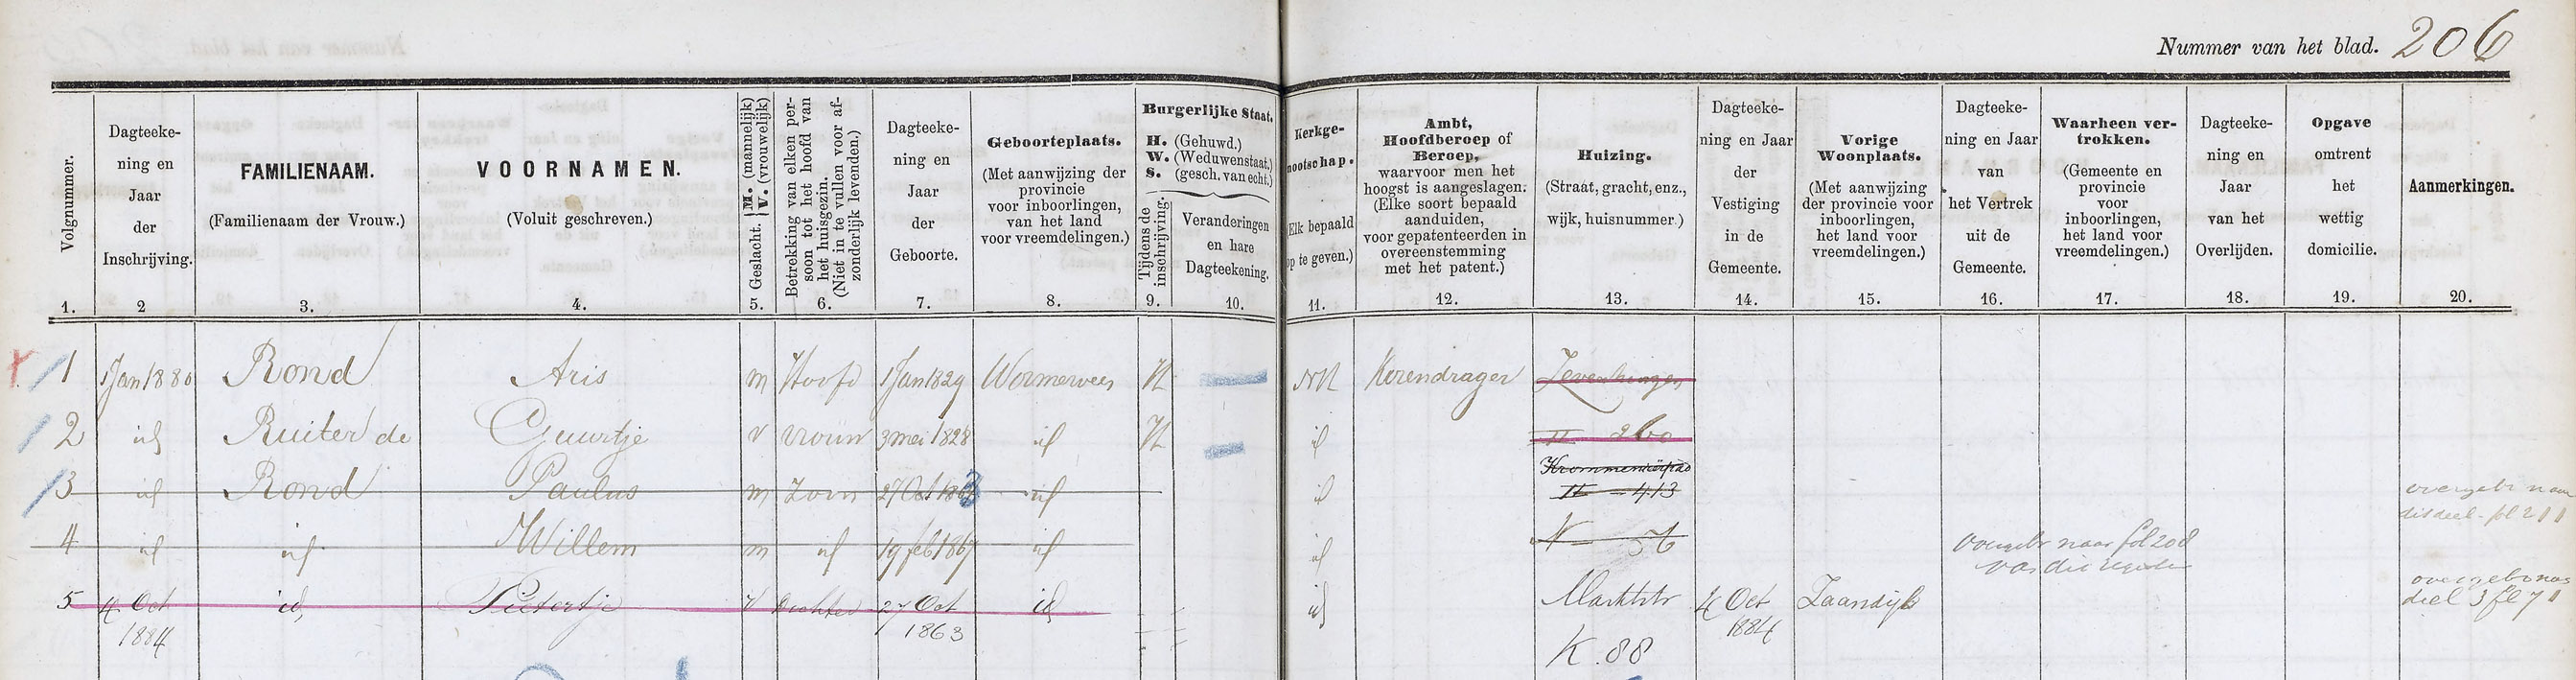 Nummer van het blad. 206
Volgnummer.
Dagteeke-
ning en
Jaar
der
Inschrijving.
FAMILIENAAM.
(Familienaam der Vrouw.)
VOORNAMEN.
(Voluit geschreven.)
Geslacht. M. (mannelijk)
V. (vrouwelijk)
Betrekking van elken per-
soon tot het hoofd van
het huisgezin.
(Niet in te vullen voor af-
zonderlijk levenden.)
Dagteeke-
ning en
Jaar
der
Geboorte.
Geboorteplaats.
(Met aanwijzing der
provincie
voor inboorlingen,
van het land
voor vreemdelingen.)
Burgerlijke Staat.
H. (Gehuwd.)
W. (Weduwenstaat.)
S. (gesch. van echt.)
Tijdens de
inschrijving.
Veranderingen
en hare
Dagteekening.
Kerkge-
nootschap.
Elk bepaald
op te geven.)
Ambt,
Hoofdberoep of
Beroep,
waarvoor men het
hoogst is aangeslagen.
(Elke soort bepaald
aanduiden,
voor gepatenteerden in
overeenstemming
met het patent.)
Huizing.
(Straat, gracht, enz.,
wijk, huisnummer.)
Dagteeke-
ning en Jaar
der
Vestiging
in de
Gemeente.
Vorige
Woonplaats.
(Met aanwijzing
der provincie voor
inboorlingen,
het land voor
vreemdelingen.)
Dagteeke-
ning en Jaar
van
het Vertrek
uit de
Gemeente.
Waarheen ver-
trokken.
(Gemeente en
provincie
voor
inboorlingen,
het land voor
vreemdelingen.)
Dagteeke-
ning en
Jaar
van het
Overlijden.
Opgave
omtrent
het
wettig
domicilie.
Aanmerkingen.
1. 2 3. 4. 5. 6. 7. 8. 9. 10. 11. 12. 13. 14. 15. 16. 17. 18. 19. 20.
1 1 Jan 1880 Rond Aris m Hoofd 1 Jan 1829 Wormerveer H NH Korendrager
2 id Ruiter de Guurtje v vrouw 3 mei 1828 id H id 260
Krommenierpad
3 id Rond Paulus m Zoon 27 Oct id id H 413 overgebr naar
dit deel fol 211
4 id id Willem m id 19 feb 1867 id id K 56 overgebr naar fol 208
van dit register
5 4 Oct id Pietertje v dochter 27 Oct id id Marktstr 4 Oct Zaandijk overgeb naar
deel 3 fol 71
1884 1863 1884
K. 88